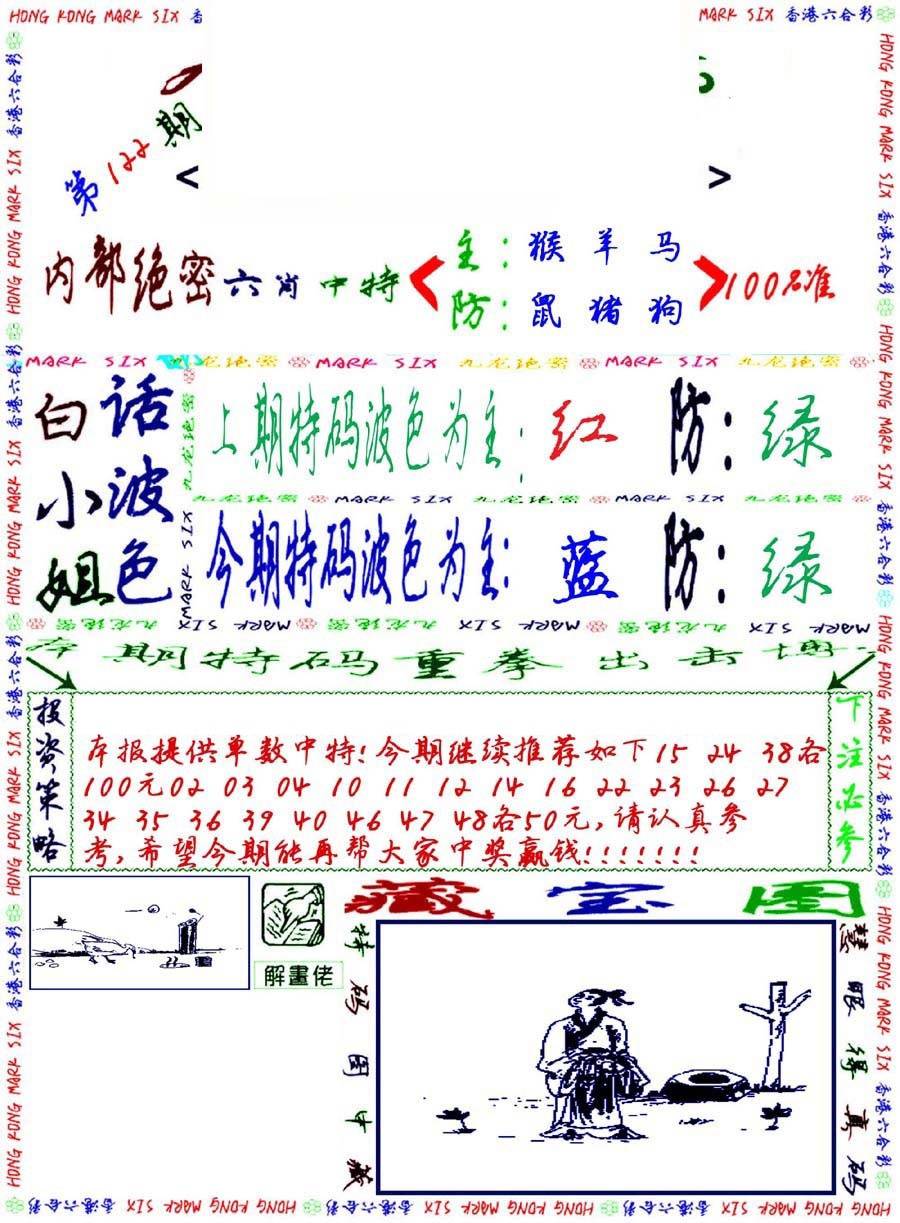 HONG KONG MARK SIX 香
MARK SIX 香港六合彩
第122期
< >
内部绝密六肖中特
主：猴 羊 马
防：鼠 猪 狗
100%准
MARK SIX 九龙绝密 MARK SIX 九龙绝密 MARK SIX 九龙绝密
白话
小波
姐色
上期特码波色为主：红 防：绿
九龙绝密 MARK SIX 九龙绝密 MARK SIX 九龙绝密
今期特码波色为主：蓝 防：绿
九龙绝密 MARK SIX 九龙绝密 MARK SIX 九龙绝密 MARK SIX
本期特码重拳出击
投资策略
本报提供单数中特!今期继续推荐如下15 24 38各
100元02 03 04 10 11 12 14 16 22 23 26 27
34 35 36 39 40 46 47 48各50元,请认真参
考,希望今期能再帮大家中奖赢钱!!!!!!!
下注必参
解畫佬
藏宝图
特码图中藏
慧眼得真码
HONG KONG MARK SIX 香港六合彩